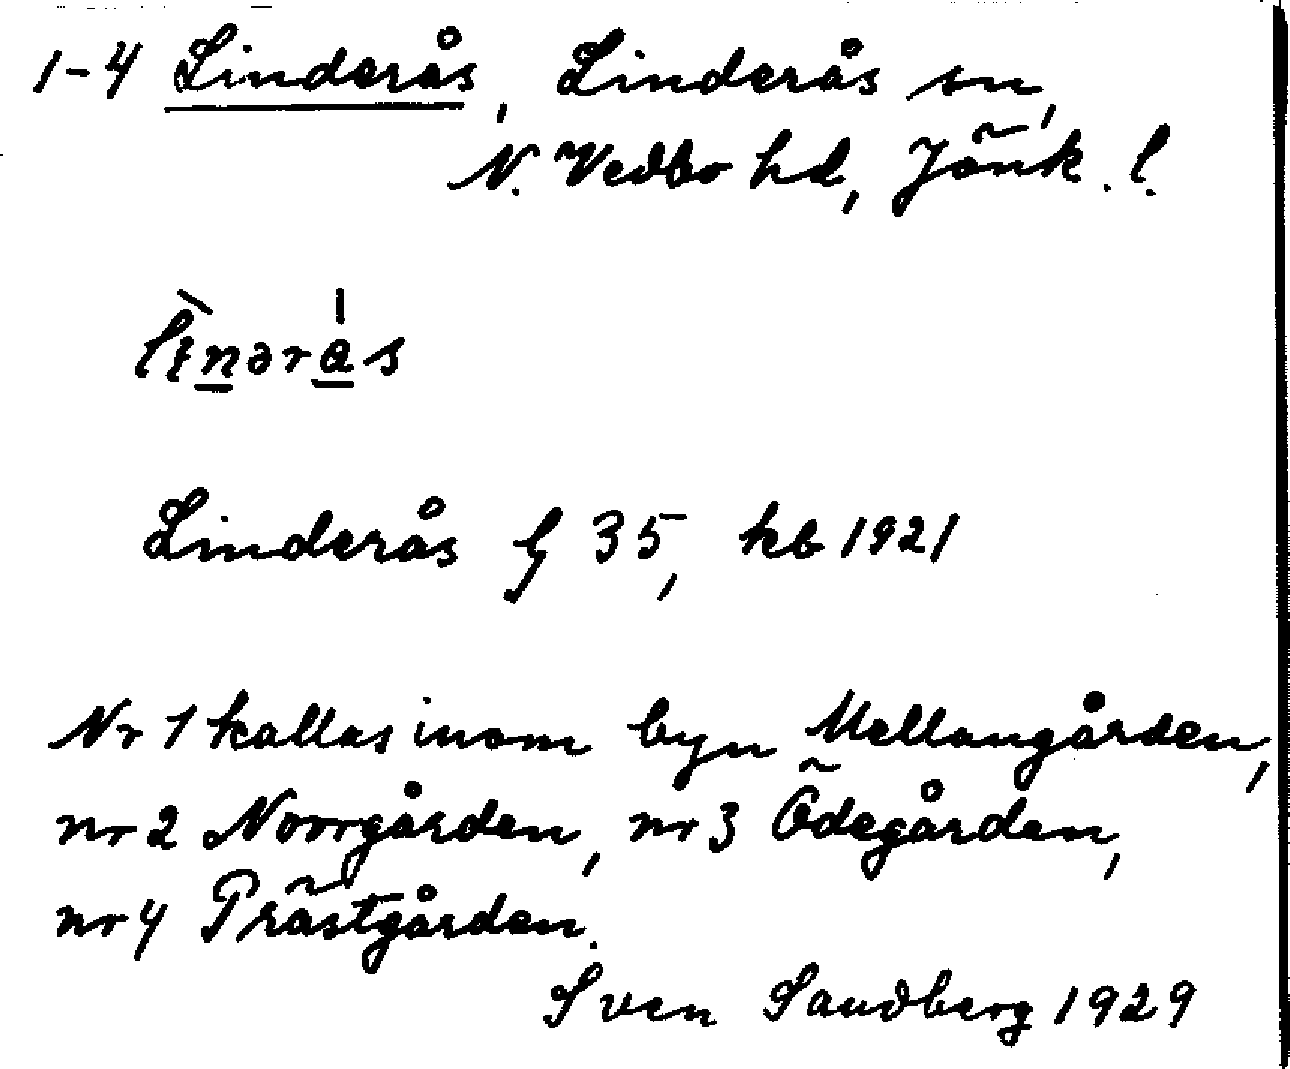 1-4 Linderås, Linderås sn,
N. Vedbo hd, Jönk. l.
Linderås f 35, kb 1921
Nr 1 kallas inom byn Mellangården,
nr 2 Norrgården, nr 3 Ödegården,
nr 4 Prästgården.
Sven Sandberg 1929